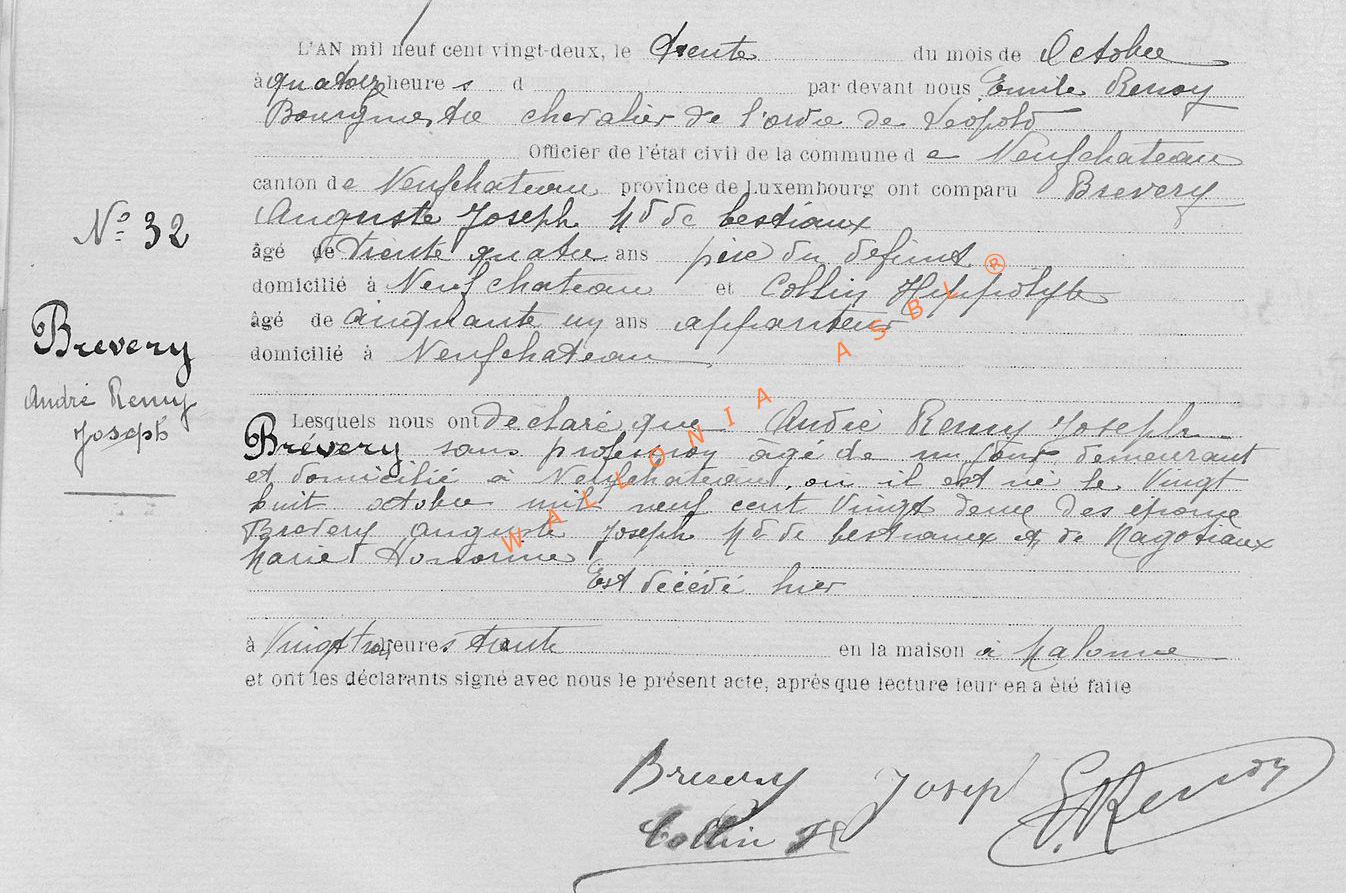 L'AN mil neuf cent vingt-deux, le trente du mois de Octobre
à quatorze heure s d par devant nous Emile Renoy
Bourgmestre chevalier de l'ordre de Léopold
Officier de l'état civil de la commune d e Neufchateau
canton de Neufchateau province de Luxembourg ont comparu Brevery
Auguste Joseph Md de bestiaux
âgé de trente quatre ans père du defunt
domicilié à Neufchateau et Collin Hippolyte
âgé de cinquante un ans appariteur
domicilié à Neufchateau
Lesquels nous ont declaré que André Remy Joseph
Brévery sans profession âgé de un jour demeurant
et domicilié à Neufchateau, ou il est né le Vingt
huit octobre mil neuf cent Vingt deux des époux
Brevery Auguste Joseph Md de bestiaux et de Nagotiaux
Marie
Est décédé hier
à Vingt trois heures trente en la maison à Malome
et ont les déclarants signé avec nous le présent acte, après que lecture leur en a été faite
No 32
Brevery
André Remy
Joseph
Brevery Joseph E. Renoy
Collin H
WALLONIA ASBL ®